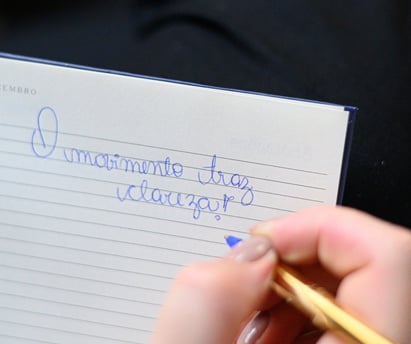 EMBRO
O movimento traz
clareza!